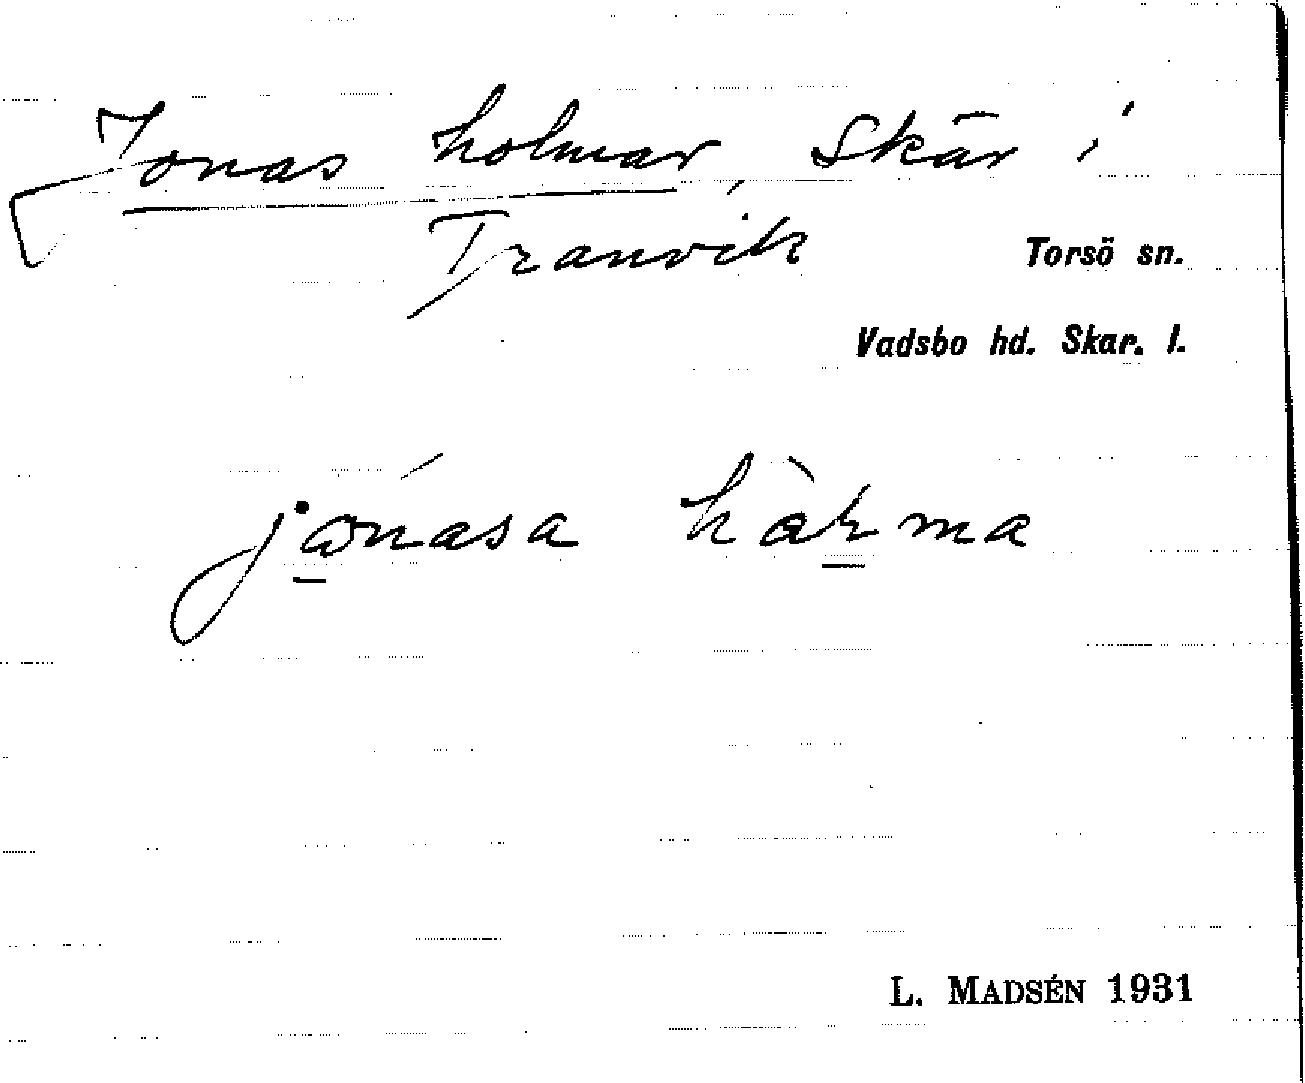 Jonas holmar, Skär i
Tranvik
Torsö sn.
Vadsbo hd. Skar. l.
L. MADSÉN 1931